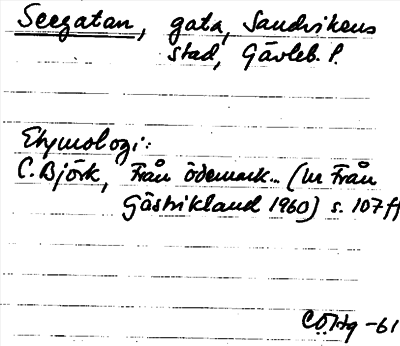 Seegatan, gata, Sandvikens
stad, Gävleb. l.
Etymologi:
C. Björk, Från ödemark... (ur Från
Gästrikland 1960) s. 107 ff
CÖHg -61